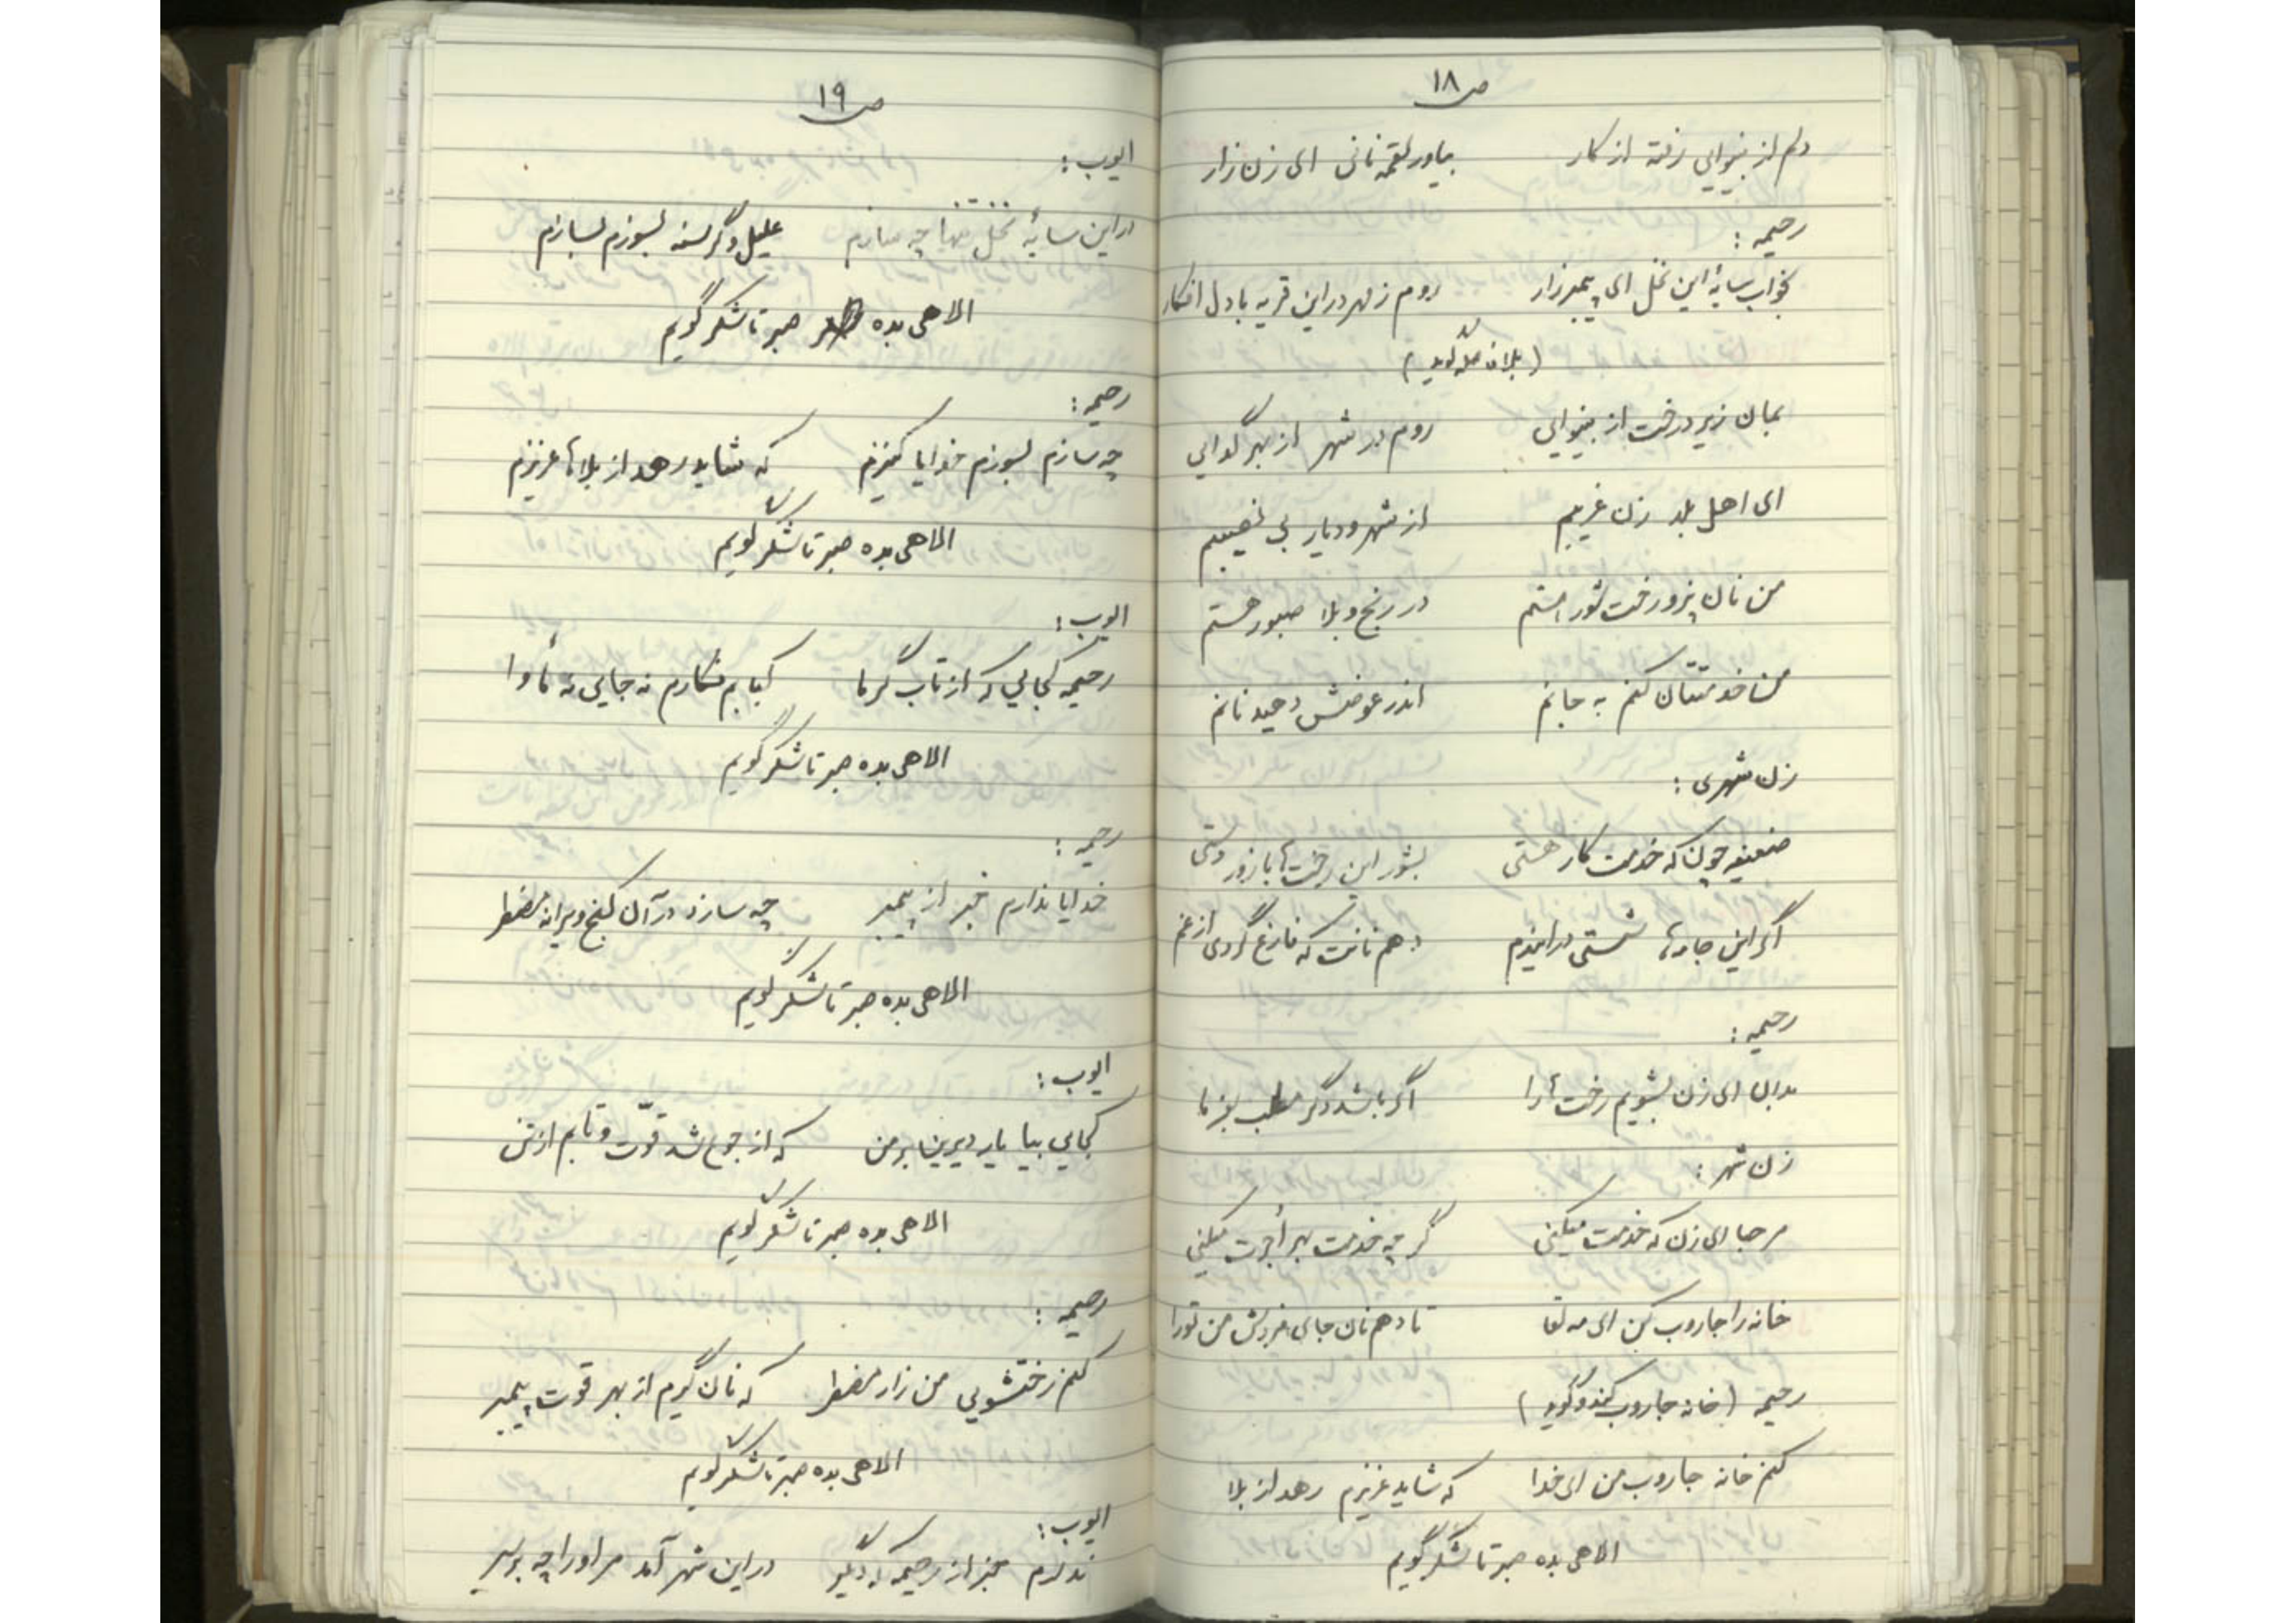 ص ۱۸
دلم از بینوایی رفته از کار بیاور لقمه نانی ای زن زار
رحیمه :
بخواب سایهٔ این نخل ای پیمبر زار روم ز مهر در این قریه با دل افکار
بمان زیر درخت از بینوایی روم در شهر از بهر گدایی
ای اهل بلد زن غریبم از شهر و دیار بی نصیبم
من نان پز و رخت شور هستم در رنج و بلا صبور هستم
من خدمتتان کنم به جانم اندر عوضش دهید نانم
زن شهری :
ضعیفه چون که خدمت کار هستی بشور این رخت ها با زور دستی
اگر این جامه ها شستی در ایندم دهم نانت که فارغ گردی از غم
رحیمه :
بدان ای زن بشویم رخت ها را اگر باشد دگر مطلب بفرما
زن شهر :
مرحبا ای زن که خدمت میکنی گر چه خدمت بهر اُجرت میکنی
خانه را جاروب کن ای مه لقا تا دهم نان جای فردش من تو را
رحیمه (خانه جاروب کند و گوید)
کنم خانه جاروب من ای خدا که شاید عزیزم رهد از بلا
الاهی بده صبر تا شکر گویم
ص ۱۹
ایوب :
در این سایهٔ نخل تنها چه سازم علیل و گرسنه بسوزم بسازم
الاهی بده صبر تا شکر گویم
رحیمه :
چه سازم بسوزم خدایا کنیزم که شاید رهد از بلاها عزیزم
الاهی بده صبر تا شکر گویم
ایوب :
رحیمه کجایی که از تاب گرما کبابم ندارم نه جایی نه مأوا
الاهی بده صبر تا شکر گویم
رحیمه :
خدایا ندارم خبر از پیمبر چه سازد در آن کنج ویرانه مضطر
الاهی بده صبر تا شکر گویم
ایوب :
کجایی بیا یار دیرینا بر من که از جوع شد قوّت و تابم از تن
الاهی بده صبر تا شکر گویم
رحیمه :
کنم رختشویی من زار مضطر که نان گیرم از بهر قوت پیمبر
الاهی بده صبر تا شکر گویم
ایوب :
ندارم خبر از رحیمه که دیگر در این شهر آمد مر او را چه بر سر